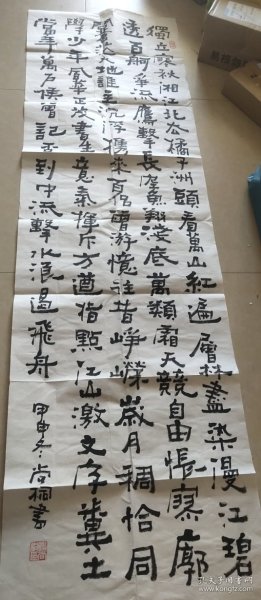 獨立寒秋湘江北去橘子洲頭看萬山紅遍層林盡染漫江碧
透百舸爭流鷹擊長空魚翔淺底萬類霜天競自由悵寥廓
問蒼茫大地誰主沉浮攜來百侶曾游憶往昔崢嶸歲月稠恰同
學少年風華正茂書生意氣揮斥方遒指點江山激文字糞土
當年萬戶侯曾記否到中流擊水浪遏飛舟
甲申冬尚桐書
孔夫子旧书网